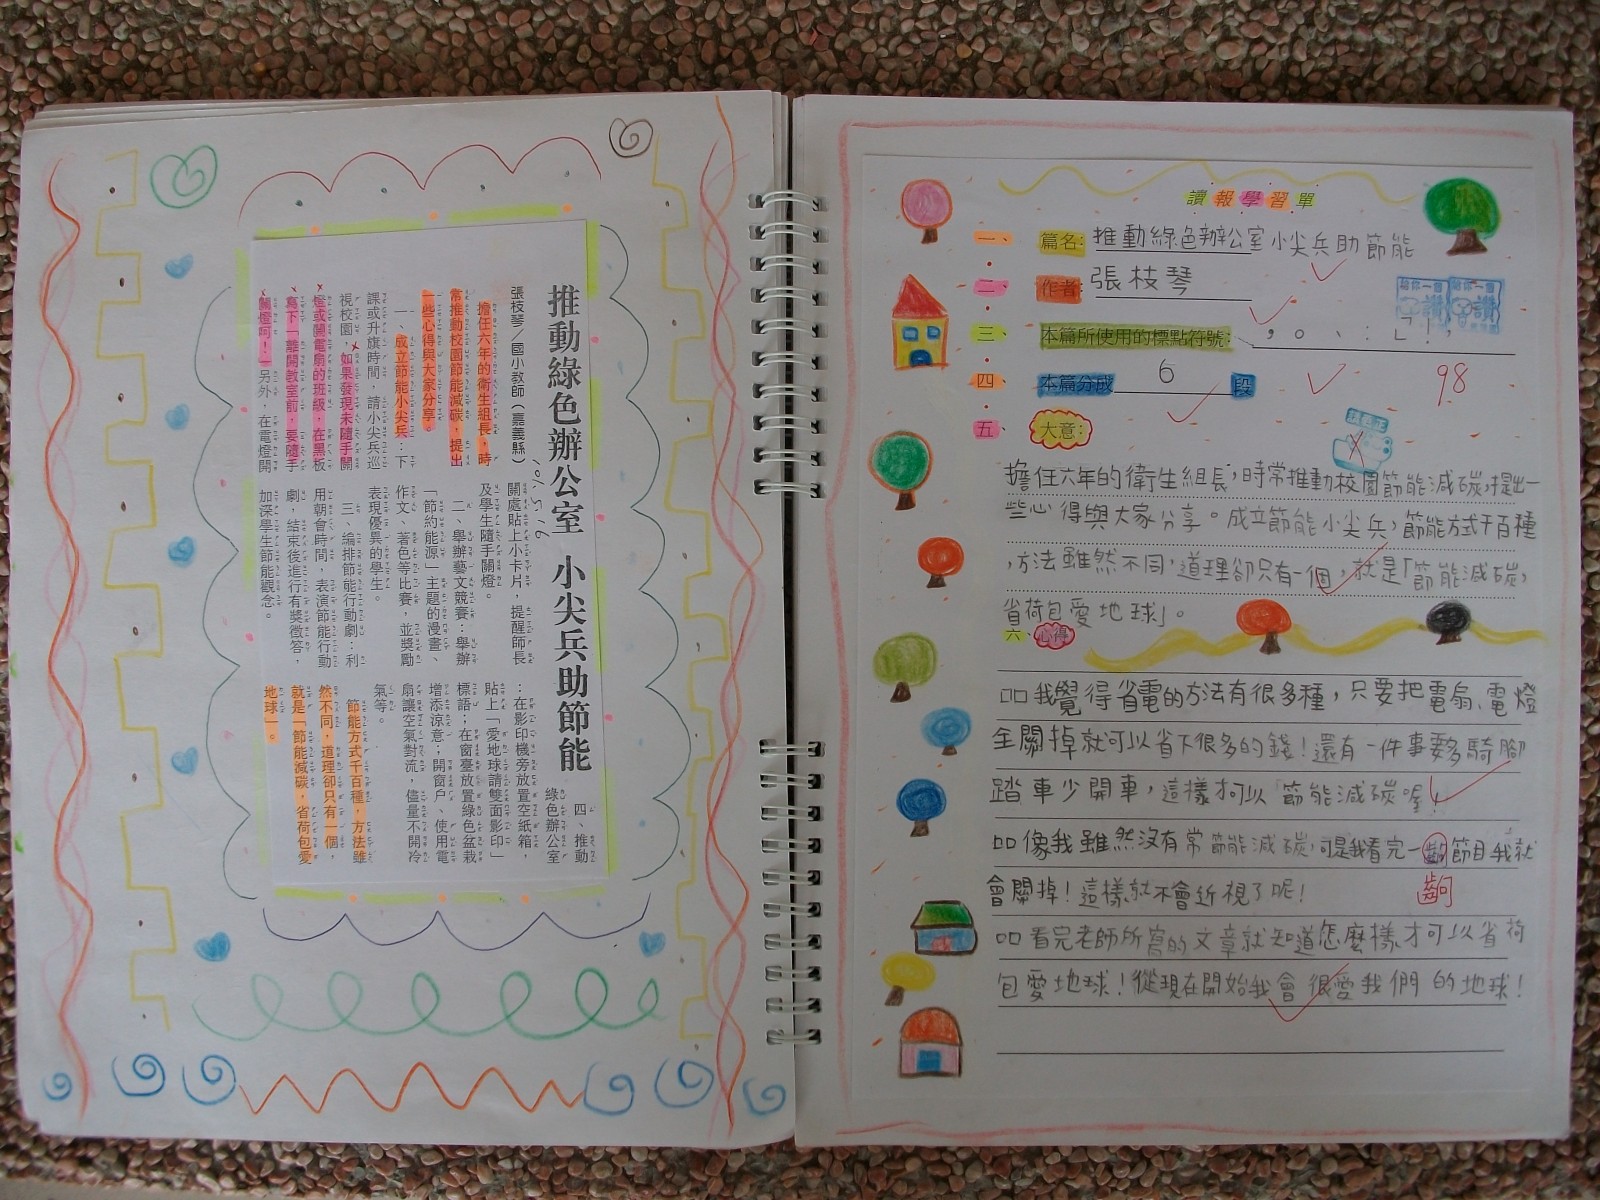 推動綠色辦公室 小尖兵助節能
張枝琴／國小教師（嘉義縣）
擔任六年的衛生組長，時
常推動校園節能減碳，提出
一些心得與大家分享。
一、成立節能小尖兵：下
課或升旗時間，請小尖兵巡
視校園，如果發現未隨手關
燈或關電扇的班級，在黑板
寫下「離開教室前，要隨手
關燈呵！」另外，在電燈開
關處貼上小卡片，提醒師長
及學生隨手關燈。
二、舉辦藝文競賽：舉辦
「節約能源」主題的漫畫、
作文、著色等比賽，並獎勵
表現優異的學生。
三、編排節能行動劇：利
用朝會時間，表演節能行動
劇，結束後進行有獎徵答，
加深學生節能觀念。
四、推動
綠色辦公室
：在影印機旁放置空紙箱，
貼上「愛地球請雙面影印」
標語；在窗臺放置綠色盆栽
增添涼意；開窗戶、使用電
扇讓空氣對流，儘量不開冷
氣等。
節能方式千百種，方法雖
然不同，道理卻只有一個，
就是「節能減碳，省荷包愛
地球」。
讀報學習單
一、篇名：推動綠色辦公室小尖兵助節能
二、作者：張枝琴
三、本篇所使用的標點符號：，。、：「」！；
四、本篇分成 6 段
98
五、大意：
擔任六年的衛生組長，時常推動校園節能減碳，提出一
些心得與大家分享。成立節能小尖兵，節能方式千百種
，方法雖然不同，道理卻只有一個，就是「節能減碳，
省荷包愛地球」。
六、心得
□□我覺得省電的方法有很多種，只要把電扇、電燈
全關掉就可以省下很多的錢！還有一件事要多騎腳
踏車少開車，這樣才可以「節能減碳喔！
□□像我雖然沒有常節能減碳，可是我看完一齣節目我就
會關掉！這樣就不會近視了呢！
齣
□□看完老師所寫的文章就知道怎麼樣才可以省荷
包愛地球！從現在開始我會很愛我們的地球！